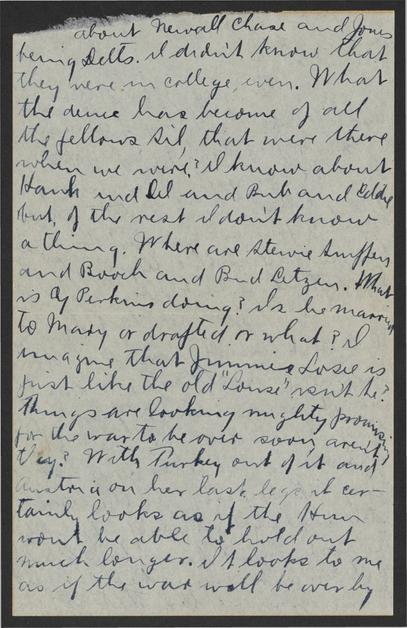 about Newall Chase and Jones
being Delts. I didn't know that
they were in college, even. What
the deuce has become of all
the fellows, Sil, that were there
when we were? I know about
Hank and Al and Bub and Eddie
but, of the rest I don't know
a thing. Where are Stewie Snuffen
and Booch and Bud Letzen. What
is Cy Perkins doing? Is he married
to Mary or drafted or what? I
imagine that Jimmie Losie is
just like the old "Louse" isn't he?
Things are looking mighty promising
for the war to be over soon, aren't
they? With Turkey out of it and
Austria on her last legs it cer-
tainly looks as if the Hun
won't be able to hold out
much longer. It looks to me
as if the war will be over by